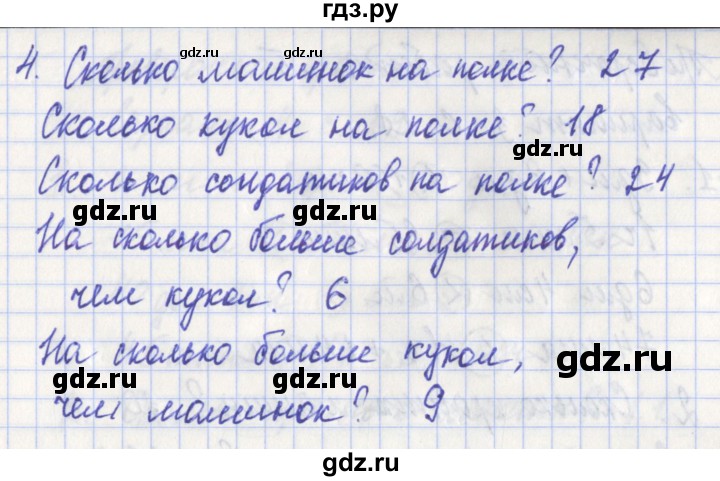 гдз.ру
4. Сколько машинок на полке? 27
Сколько кукол на полке? 18
Сколько солдатиков на полке? 24
На сколько больше солдатиков,
чем кукол? 6
На сколько больше кукол,
чем машинок? 9
gdz.ru
gdz.ru
gdz.ru
gdz.ru
gdz.ru
gdz.ru
gdz.ru
gdz.ru
gdz.ru
gdz.ru
gdz.ru